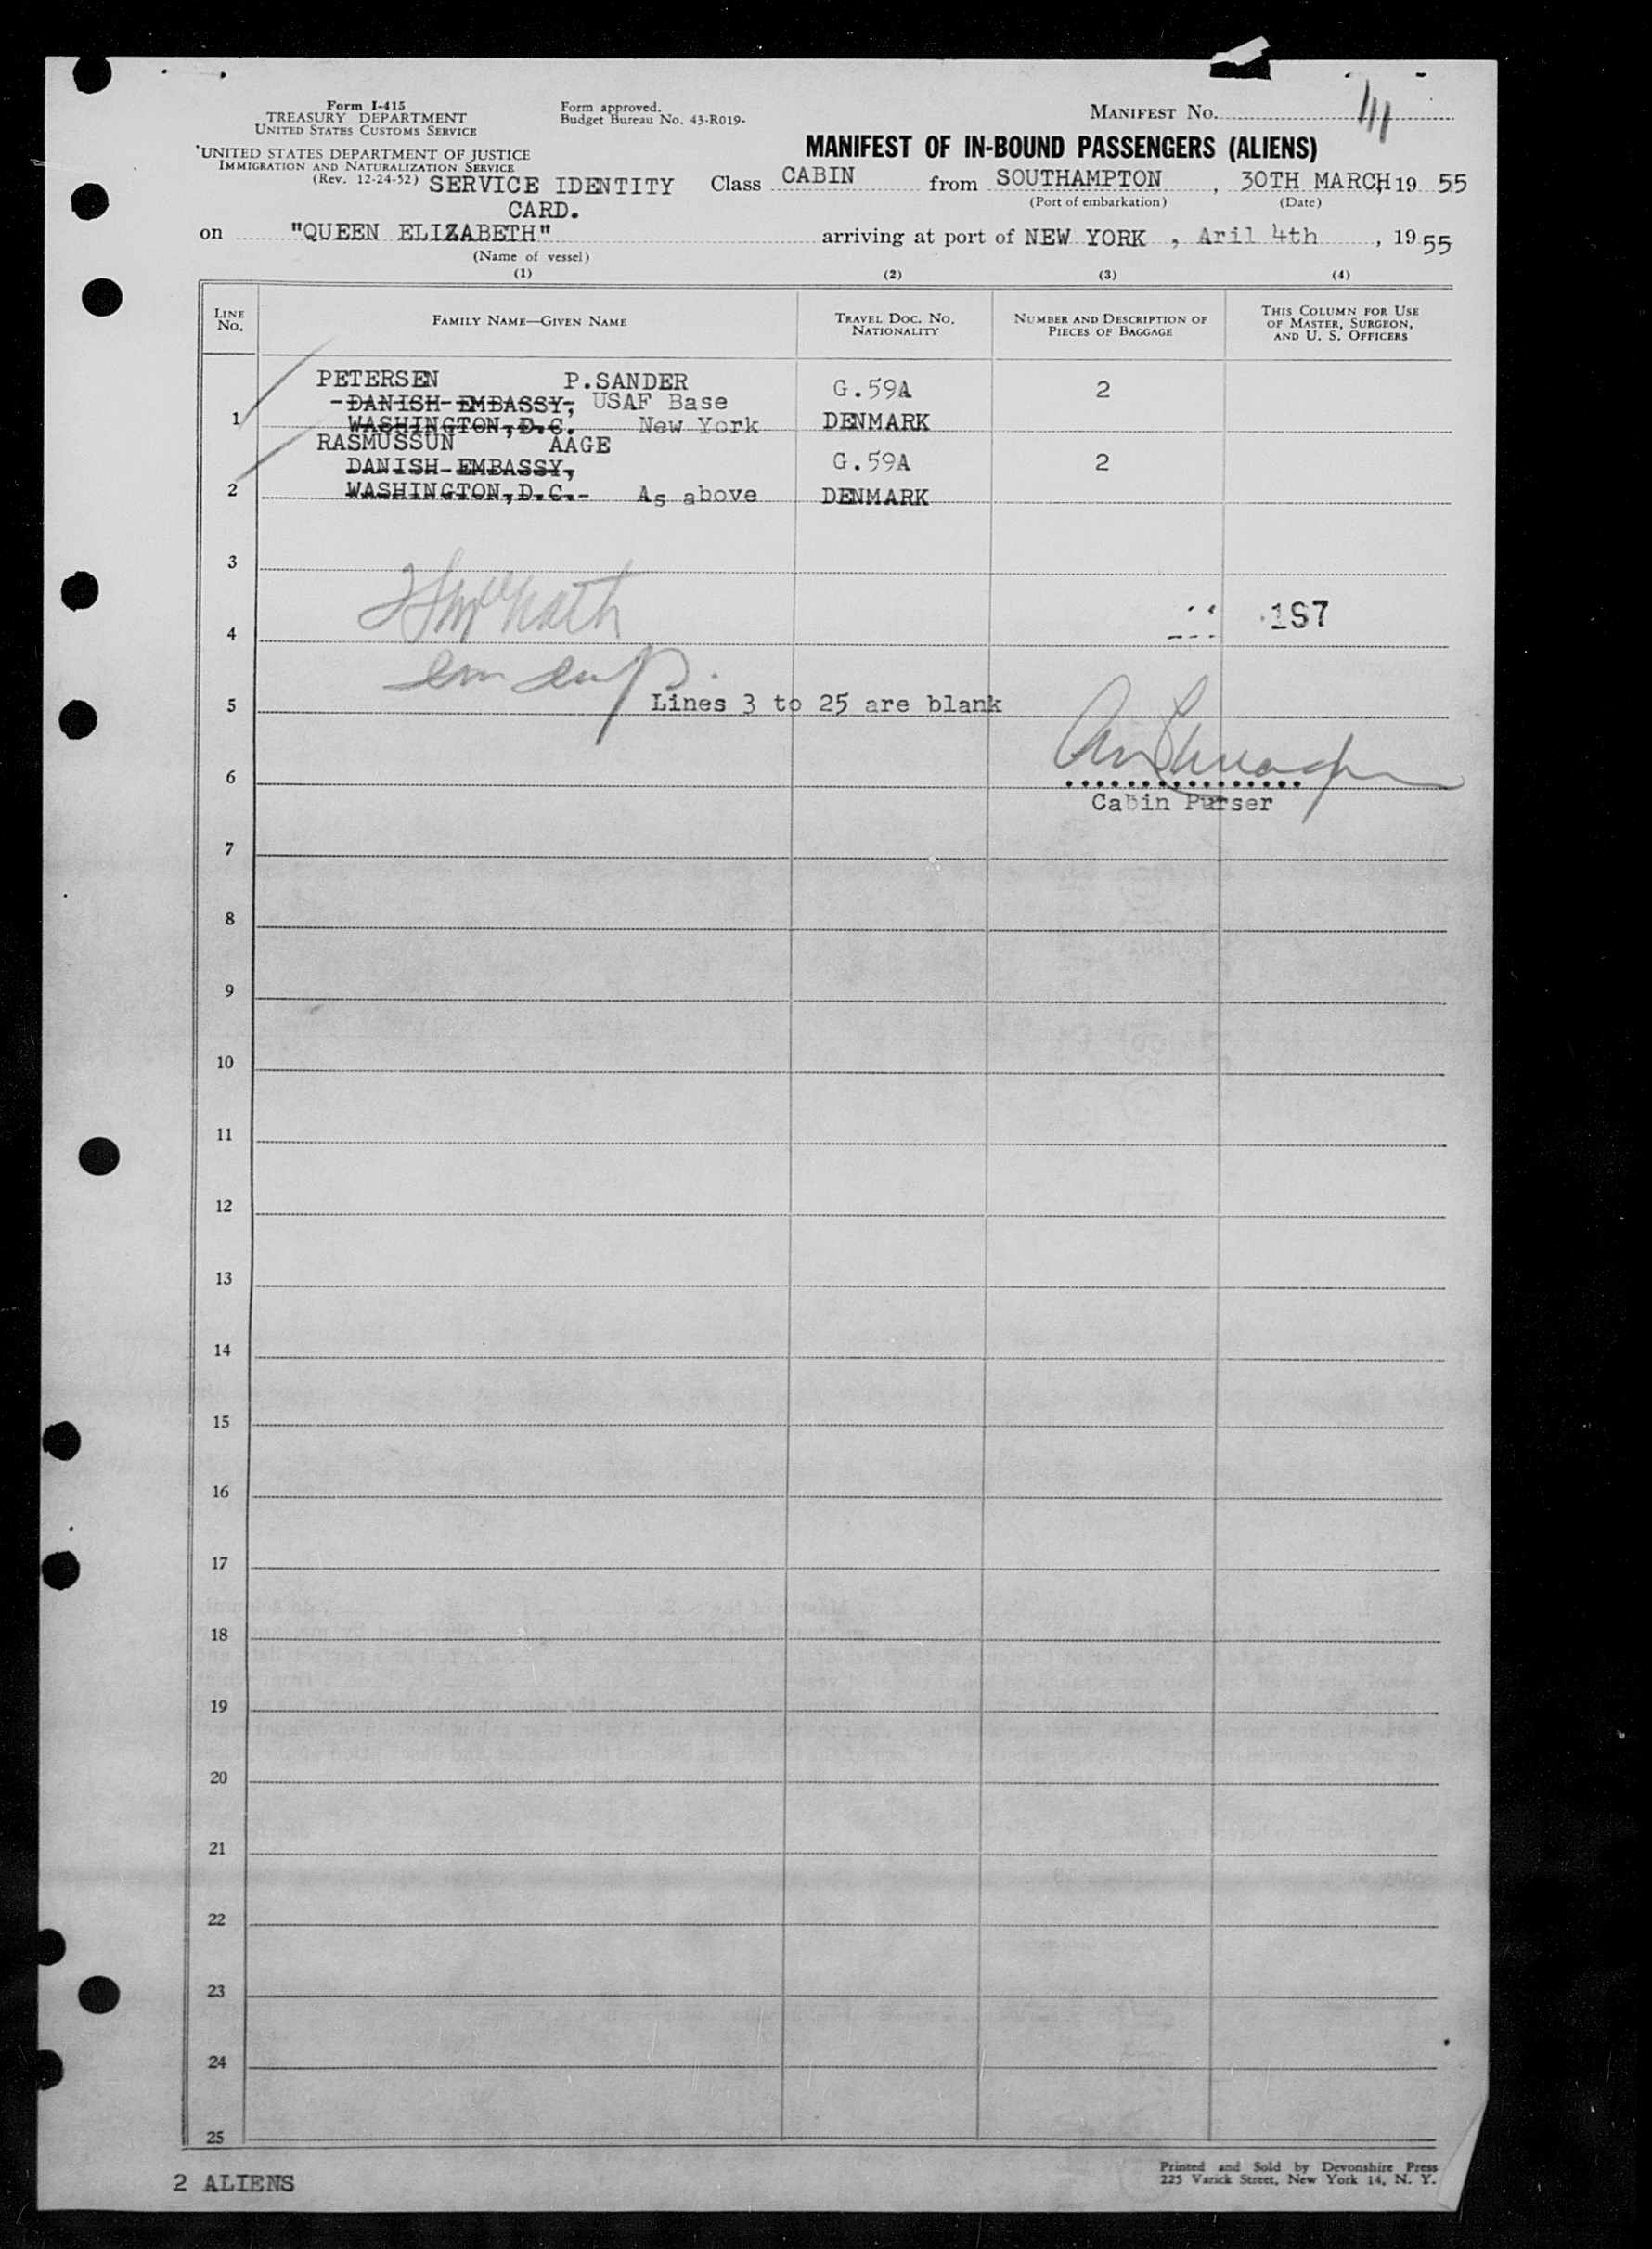 Form I-415
TREASURY DEPARTMENT
UNITED STATES CUSTOMS SERVICE
Form approved.
Budget Bureau No. 43-R019-
MANIFEST No.
UNITED STATES DEPARTMENT OF JUSTICE
IMMIGRATION AND NATURALIZATION SERVICE
(Rev. 12-24-52)
MANIFEST OF IN-BOUND PASSENGERS (ALIENS)
SERVICE IDENTITY CARD.
Class CABIN from SOUTHAMPTON, 30TH MARCH, 19 55
(Port of embarkation) (Date)
on "QUEEN ELIZABETH" arriving at port of NEW YORK, Aril 4th, 19 55
(Name of vessel)
(1) (2) (3) (4)
LINE No. FAMILY NAME—GIVEN NAME TRAVEL DOC. NO. NATIONALITY NUMBER AND DESCRIPTION OF PIECES OF BAGGAGE THIS COLUMN FOR USE OF MASTER, SURGEON, AND U. S. OFFICERS
PETERSEN P.SANDER G.59A 2
-DANISH-EMBASSY, USAF Base
1 WASHINGTON, D.C. New York DENMARK
RASMUSSUN AAGE G.59A 2
DANISH-EMBASSY,
2 WASHINGTON, D.C.- As above DENMARK
3
4 187
5 Lines 3 to 25 are blank
6
Cabin Purser
7
8
9
10
11
12
13
14
15
16
17
18
19
20
21
22
23
24
25
2 ALIENS
Printed and Sold by Devonshire Press
225 Varick Street, New York 14, N. Y.